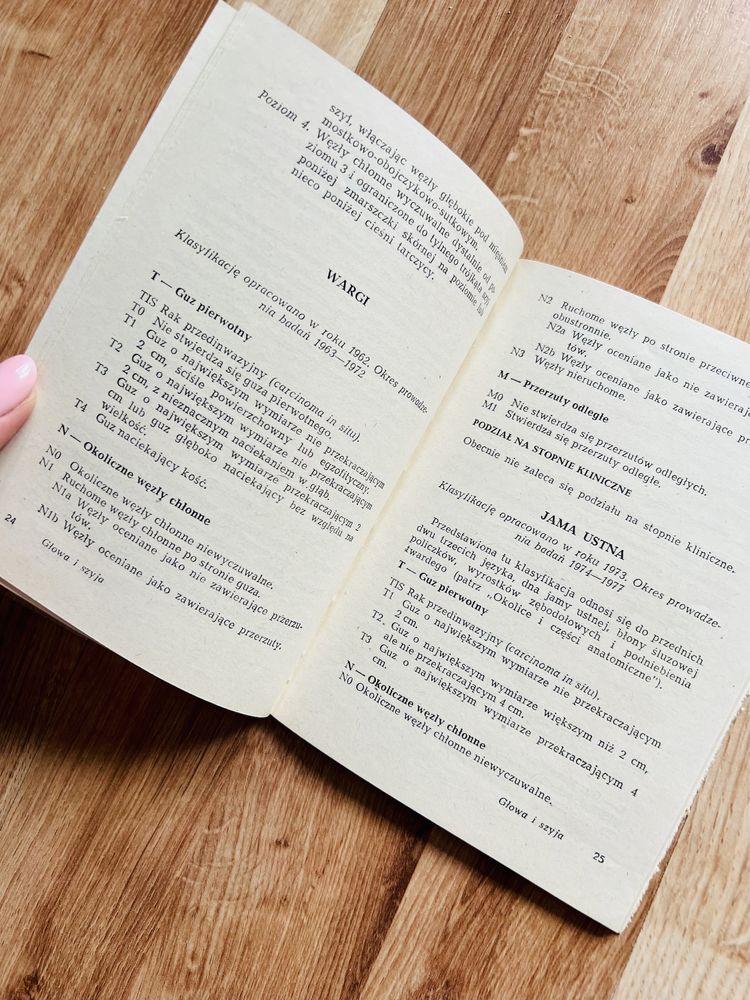 szyi, włączając węzły głębokie pod mięśniem
mostkowo-obojczykowo-sutkowym.
Poziom 4. Węzły chłonne wyczuwalne dystalnie od po-
ziomu 3 i ograniczone do tylnego trójkąta szyi
poniżej zmarszczki skórnej na poziomie lub
nieco poniżej cieśni tarczycy.
WARGI
Klasyfikację opracowano w roku 1962. Okres prowadze-
nia badań 1963—1972
T — Guz pierwotny
TIS Rak przedinwazyjny (carcinoma in situ).
T0 Nie stwierdza się guza pierwotnego.
T1 Guz o największym wymiarze nie przekraczającym
2 cm, ściśle powierzchowny lub egzofityczny.
T2 Guz o największym wymiarze nie przekraczającym
2 cm, z nieznacznym naciekaniem w głąb.
T3 Guz o największym wymiarze przekraczającym 2
cm lub guz głęboko naciekający bez względu na
wielkość.
T4 Guz naciekający kość.
N — Okoliczne węzły chłonne
N0 Okoliczne węzły chłonne niewyczuwalne.
N1 Ruchome węzły chłonne po stronie guza.
N1a Węzły oceniane jako nie zawierające przerzu-
tów.
N1b Węzły oceniane jako zawierające przerzuty.
24 Głowa i szyja
N2 Ruchome węzły po stronie przeciwnej
obustronnie.
N2a Węzły oceniane jako nie zawierają
tów.
N2b Węzły oceniane jako zawierające pr
N3 Węzły nieruchome.
M — Przerzuty odległe
M0 Nie stwierdza się przerzutów odległych.
M1 Stwierdza się przerzuty odległe.
PODZIAŁ NA STOPNIE KLINICZNE
Obecnie nie zaleca się podziału na stopnie kliniczne.
JAMA USTNA
Klasyfikację opracowano w roku 1973. Okres prowadze-
nia badań 1974—1977
Przedstawiona tu klasyfikacja odnosi się do przednich
dwu trzecich języka, dna jamy ustnej, błony śluzowej
policzków, wyrostków zębodołowych i podniebienia
twardego (patrz „Okolice i części anatomiczne").
T — Guz pierwotny
TIS Rak przedinwazyjny (carcinoma in situ).
T1 Guz o największym wymiarze nie przekraczającym
2 cm.
T2. Guz o największym wymiarze większym niż 2 cm,
ale nie przekraczającym 4 cm.
T3 Guz o największym wymiarze przekraczającym 4
cm.
N — Okoliczne węzły chłonne
N0 Okoliczne węzły chłonne niewyczuwalne.
Głowa i szyja 25